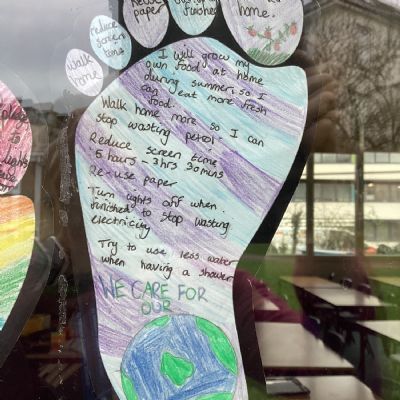 Re-use
paper
finished
home.
reduce
screen
time
Walk
home
I will grow my
own food at home
during summer, so I
can eat more fresh
food.
Walk home more so I can
stop wasting petrol
Reduce screen time
6 hours - 3hrs 30mins
Re-use paper
Turn lights off when
finished to stop wasting
electricity
Try to use less water
when having a shower
WE CARE FOR
OUR